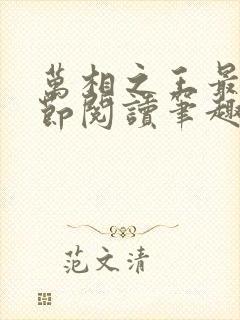 萬相之王最
節閱讀筆趣
范文清